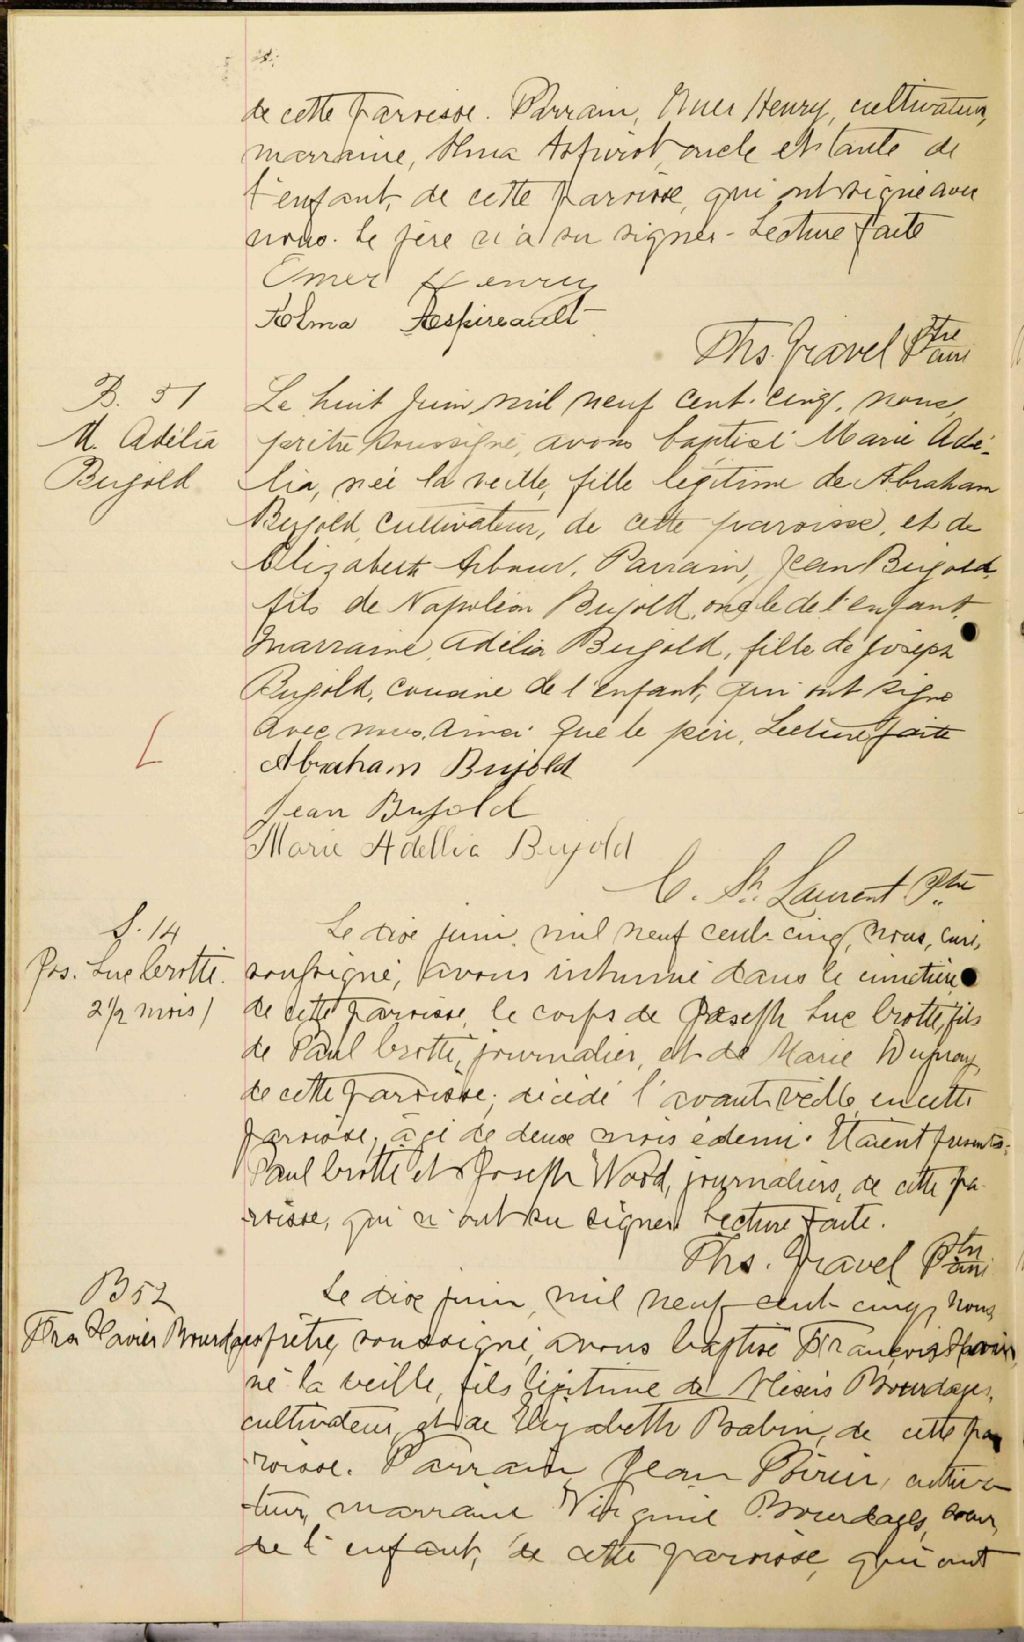 de cette paroisse. Parrain, Omer Henry, cultivateur,
marraine, Alma Aspirot, oncle et tante de
l'enfant, de cette paroisse, qui ont signé avec
nous. Le père n'a su signer - Lecture faite
Omer Henry
Alma Aspireault
Ths. Gravel Ptre
Curé
B. 51
M. Adélia
Bujold
Le huit juin, mil neuf cent-cinq, nous,
prêtre soussigné, avons baptisé Marie Adé-
lia, née la veille, fille légitime de Abraham
Bujold, cultivateur, de cette paroisse, et de
Elizabeth Arbour. Parrain, Jean Bujold,
fils de Napoléon Bujold, oncle de l'enfant,
marraine, Adélia Bujold, fille de Joseph
Bujold, cousine de l'enfant, qui ont signé
avec nous, ainsi que le père. Lecture faite
Abraham Bujold
Jean Bujold
Marie Adellia Bujold
C. St. Laurent Ptre
S. 14
Jos. Luc Crotté.
2 1/2 mois)
Le dix juin, mil neuf cent-cinq, nous, curé,
soussigné, avons inhumé dans le cimetière
de cette paroisse, le corps de Joseph Luc Crotté, fils
de Paul Crotté, journalier, et de Marie Dupray,
de cette paroisse; décédé l'avant-veille, en cette
paroisse, âgé de deux mois et demi. Etaient présents:
Paul Crotté et Joseph Wood, journaliers, de cette pa-
roisse, qui n'ont su signer. Lecture faite.
Ths. Gravel Ptre
Curé
B 52
Frs Xavier Bourdages
Le dix juin, mil neuf cent-cinq, nous,
prêtre, soussigné, avons baptisé François Xavier,
né la veille, fils légitime de Alexis Bourdages,
cultivateur, et de Elizabeth Babin, de cette pa-
roisse. Parrain Jean Poirier, cultiva-
teur, marraine Virginie Bourdages, soeur,
de l'enfant, de cette paroisse, qui ont